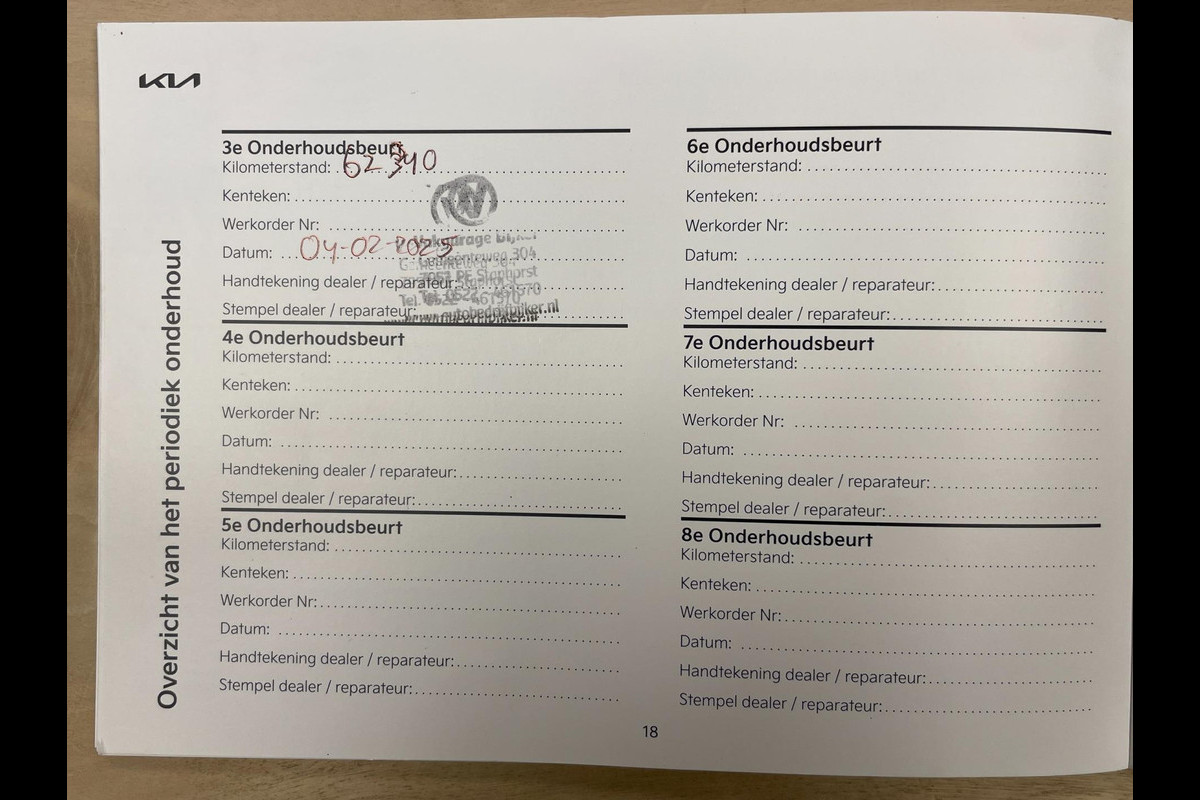 KIA
Overzicht van het periodiek onderhoud
3e Onderhoudsbeurt
Kilometerstand:
Kenteken:
Werkorder Nr:
Datum: 04-02-2025
Handtekening dealer / reparateur:
Stempel dealer / reparateur:
Gemeenteweg 304
7951 PE Staphorst
4e Onderhoudsbeurt
Kilometerstand:
Kenteken:
Werkorder Nr:
Datum:
Handtekening dealer / reparateur:
Stempel dealer / reparateur:
5e Onderhoudsbeurt
Kilometerstand:
Kenteken:
Werkorder Nr:
Datum:
Handtekening dealer / reparateur:
Stempel dealer / reparateur:
6e Onderhoudsbeurt
Kilometerstand:
Kenteken:
Werkorder Nr:
Datum:
Handtekening dealer / reparateur:
Stempel dealer / reparateur:
7e Onderhoudsbeurt
Kilometerstand:
Kenteken:
Werkorder Nr:
Datum:
Handtekening dealer / reparateur:
Stempel dealer / reparateur:
8e Onderhoudsbeurt
Kilometerstand:
Kenteken:
Werkorder Nr:
Datum:
Handtekening dealer / reparateur:
Stempel dealer / reparateur:
18